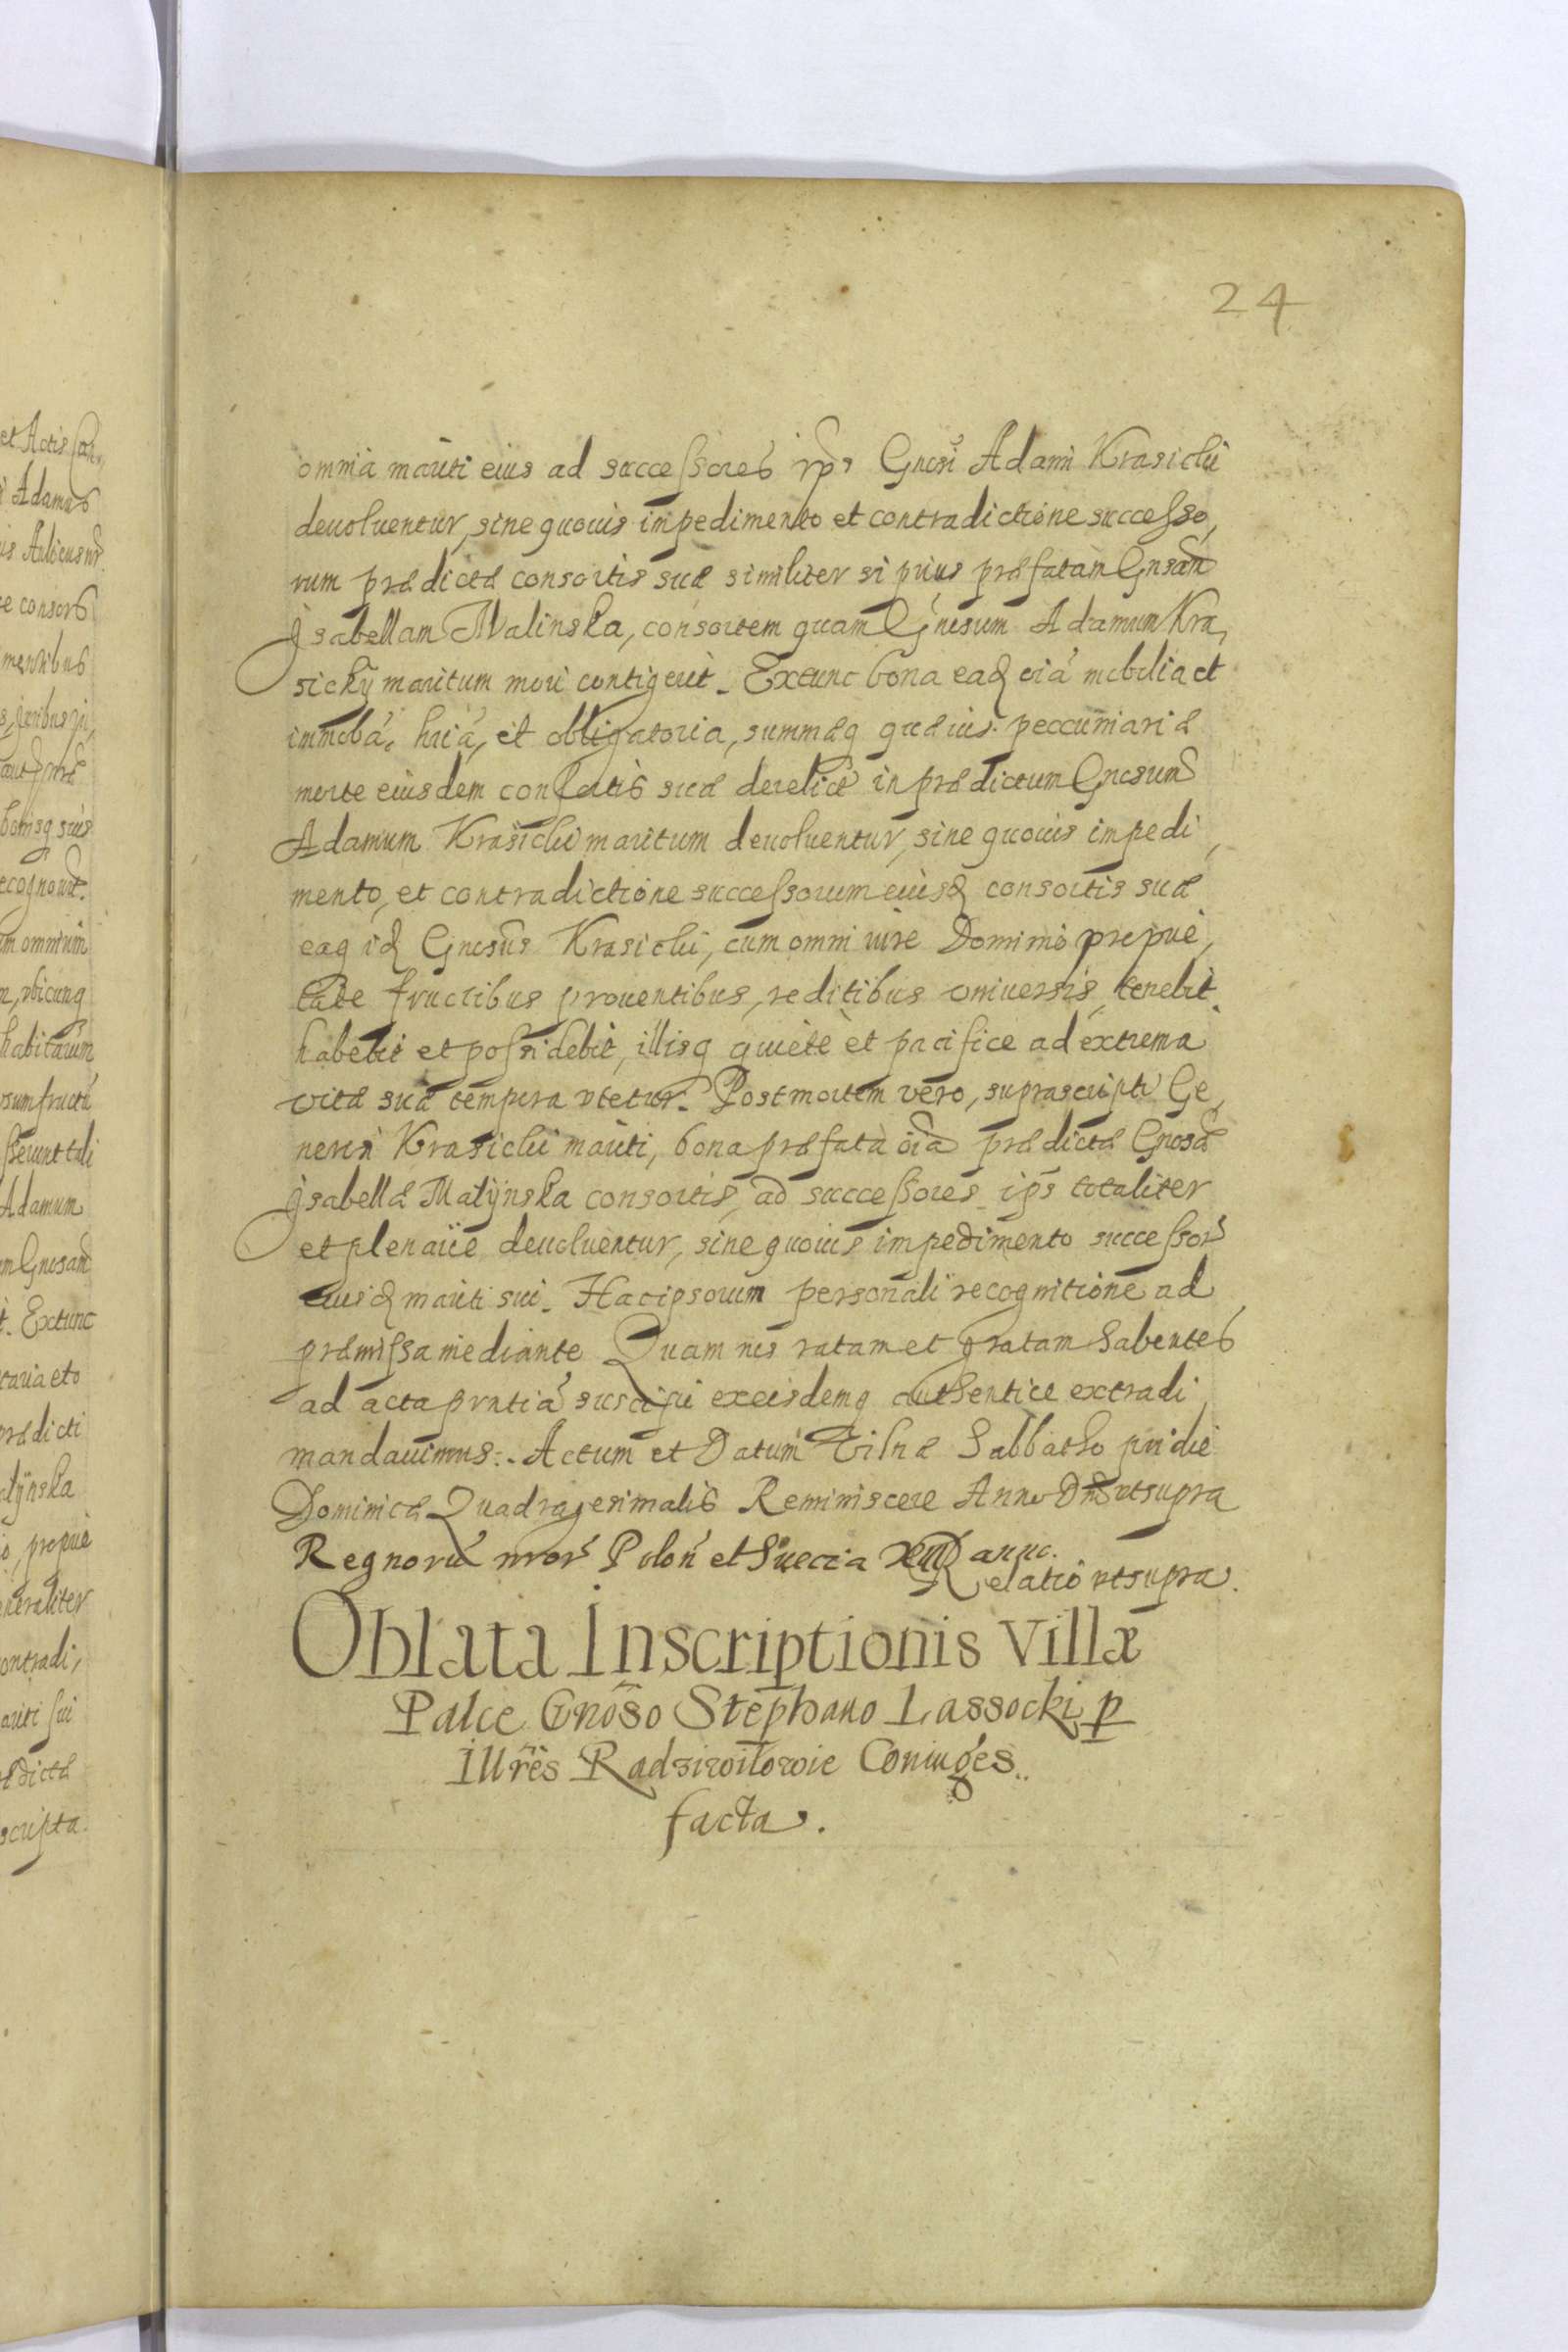 24
omnia mariti eius ad successores ips Gnosi Adami Krasicki
deuoluentur, sine quouis impedimento et contradictione successo,
rum prædictæ consortis suæ similiter si prius præfatam Gnsam
Isabellam Malinska, consortem quam Gnosum Adamum Kra,
sicky maritum mori contigerit. Extunc bona eaq oia mobilia et
immoba, hæria, et obligatoria, summæq quæuis peccuniariæ
morte eiusdem consortis suæ derelictè in prædictum Gnosum
Adamum Krasicki maritum deuoluentur, sine quouis impedi,
mento, et contradictione successorum eiusq consortis suæ
eaq idq Gnosus Krasicki, cum omni iure Dominio proprie,
tate fructibus prouentibus, reditibus vniuersis, tenebit
habebit et possidebit, illisq quiete et pacifice ad extrema
vitæ suæ tempora vtetur. Post mortem vero, suprascripti Ge,
nerosi Krasicki mariti, bona præfata oia prædictæ Gnosæ
Isabellæ Malÿnska consortis, ad successores ips totaliter
et plenarie deuoluentur, sine quouis impedimento successor
eiusdq mariti sui. Hac ipsorum personali recognitione ad
præmissa mediante Quam nos ratam et gratam habentes
ad acta prntia suscipi exeisdemq authentice extradi
mandauimus. Actum et Datum Vilnæ Sabbatho pridie
Dominicæ Quadragesimalis Reminiscere Anno Dni vtsupra
Regnoru nror Polon et Sueciæ anno.
Relatio vtsupra.
Oblata Inscriptionis Villæ
Palce Gnoso Stephano Lassocki p
Illres Radziwilowie Coniuges
facta.
et Actis Can,
Adamus
e consors
bonisq suis
recognouit.
m omnium
n, vbicunq
habitarum
vsumfructu
sserunt tali
Adamum
m Gnosam
t. Extunc
prædicti
alÿnska
io, proprie
eneraliter
contradi,
ariti sui
ædictæ
scripta.